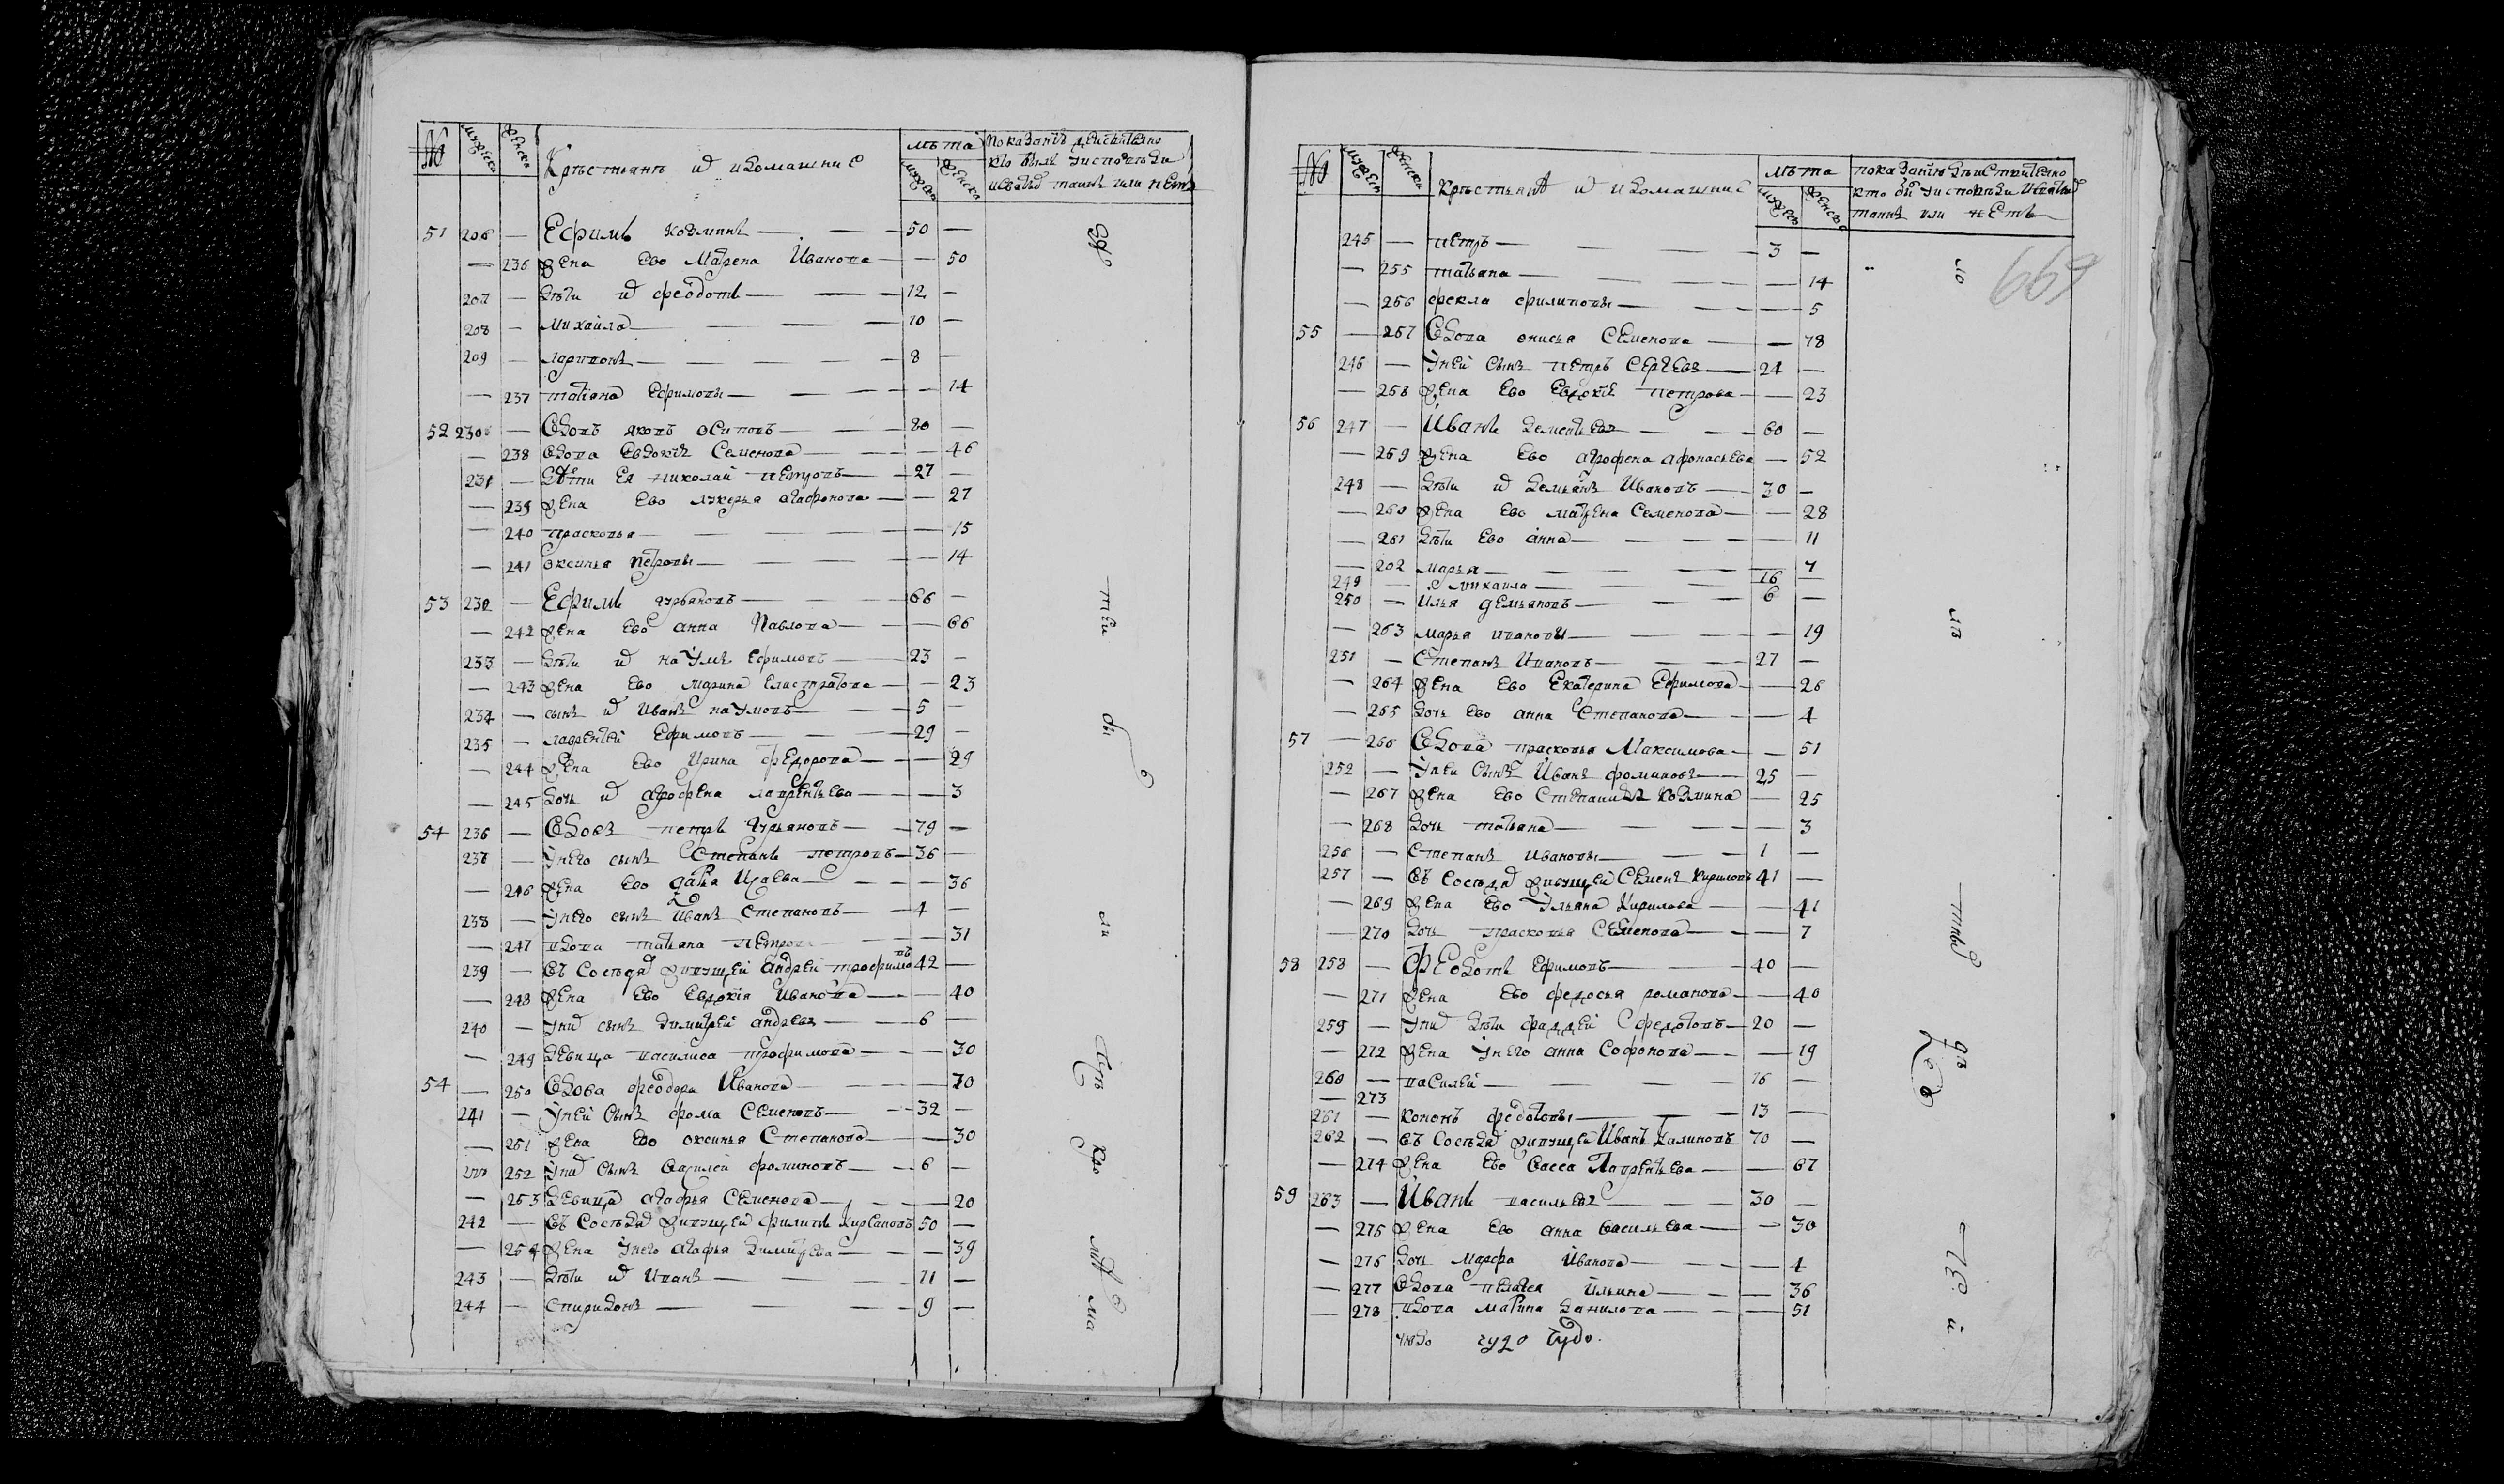 № мужеска женска Крестьянъ и их домашние лѣта мужеска женска
Показанїе действително
кто былъ у исповѣди
и святыхъ таинъ или нетъ
51 206 — Ефимъ Козминъ — 50 —
— 236 жена ево Матрена Иванова — — 50
207 — дѣти их Феодотъ — 12 —
208 — Михайла — 10 —
209 — Ларионъ — 8 —
— 237 Татиана Ефимовы — — 14
52 230 — вдовъ Яковъ Осиповъ — 80 —
— 238 вдова Евдокия Семенова — — 46
231 — дѣти ея Николай Петровъ — 27 —
— 239 жена ево Лукерья Агафонова — — 27
— 240 Прасковья — — 15
— 241 Оксинья Петровы — — 14
53 232 — Ефимъ Гурьяновъ — 66 —
— 242 жена ево Анна Павлова — — 66
233 — дѣти их Наумъ Ефимовъ — 23 —
— 243 жена ево Марина Елистратова — — 23
234 — сынъ их Иванъ Наумовъ — 5 —
235 — Лаврентей Ефимовъ — 29 —
— 244 жена ево Ирина Федорова — — 29
— 245 дочь их Агрофена Лаврентьева — — 3
54 236 — вдовъ Петръ Гурьяновъ — 79 —
237 — у него сынъ Степанъ Петровъ — 36 —
— 246 жена ево Дарья Исаева — — 36
238 — у него сынъ Иванъ Степановъ — 4 —
— 247 вдова Татьяна Петрова — — 31
239 — въ соседях живущей Андрей Трофимовъ 42 —
— 248 жена ево Евдокїя Иванова — — 40
240 — у них сынъ Димитрей Андреевъ — 6 —
— 249 девица Василиса Трофимова — — 30
54 — 250 вдова Феодора Иванова — — 70
241 — у ней сынъ Фома Семеновъ — 32 —
— 251 жена ево Оксинья Степанова — — 30
252 у них сынъ Василей Фоминовъ — 6 —
— 253 девица Агафья Семенова — — 20
242 — въ соседях живущей Филипъ Кирсановъ 50 —
— 254 жена у него Агафья Димитрева — — 39
243 — дѣти их Иванъ — 11 —
244 — Спиридонъ — 9 —
№ мужеска женска Крестьянъ и их домашние лѣта мужеска женска
показанїе действително
кто былъ у исповѣди и святыхъ
таинъ или нетъ
669
245 — Петръ — 3 —
— 255 Татьяна — — 14
— 256 Фекла Филиповы — — 5
55 — 257 вдова Онисья Семенова — — 78
246 — у ней сынъ Петръ Сергеевъ — 24 —
— 258 жена ево Евдокїя Петрова — — 23
56 247 — Иванъ Дементьевъ — 60 —
— 259 жена ево Агрофена Афонасьева — 52
248 — дѣти их Демьянъ Ивановъ — 30 —
— 260 жена ево Матрена Семенова — — 28
— 261 дѣти ево Анна — — 11
— 202 Марья — — 7
249 — Михаила — 16 —
250 — Илья Демьяновъ — 6 —
— 263 Марья Ивановы — — 19
251 — Степанъ Ивановъ — 27 —
— 264 жена ево Екатерина Ефимова — — 26
— 265 дочь ево Анна Степанова — — 4
57 — 266 вдова Прасковья Максимова — — 51
252 — у ней сынъ Иванъ Фоминовъ — 25 —
— 267 жена ево Степанида Козмина — 25
— 268 дочь Татьяна — — 3
256 — Степанъ Ивановы — 1 —
257 — въ соседях живущей Семенъ Кириловъ 41 —
— 269 жена ево Ульяна Кирилова — — 41
— 270 дочь Прасковья Семенова — — 7
58 258 — Феодотъ Ефимовъ — 40 —
— 271 жена ево Федосья Романова — — 40
259 — у них дѣти Фаддей Федотовъ — 20 —
— 272 жена у него Анна Софонова — — 19
260 — Василей — 16 —
— 273
261 — Кононъ Федотовы — 13 —
262 — въ соседях живущей Иванъ Галиновъ 70 —
— 274 жена ево Васса Лаврентьева — — 67
59 263 — Иванъ Васильевъ — 30 —
— 275 жена ево Анна Васильева — — 30
— 276 дочь Марфа Иванова — — 4
— 277 вдова Пелагея Ильина — — 36
— 278 вдова Марина Данилова — — 51
чюдо чудо чудо.